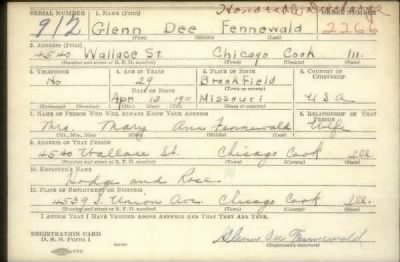 Honorable Discharge
SERIAL NUMBER 1. NAME (Print) ORDER NUMBER
912 Glenn Dee Fennewald 2266
(First) (Middle) (Last)
3. ADDRESS (Print)
4540 Wallace St. Chicago Cook Ill.
(Number and street or R. F. D. number) (Town) (County) (State)
3. TELEPHONE 4. AGE IN YEARS 5. PLACE OF BIRTH 6. COUNTRY OF CITIZENSHIP
No 29 Brookfield
DATE OF BIRTH (Town or county)
Apr 13 1911 Missouri U S A
(Exchange) (Number) (Mo.) (Day) (Yr.) (State or country)
7. NAME OF PERSON WHO WILL ALWAYS KNOW YOUR ADDRESS 8. RELATIONSHIP OF THAT PERSON
Mrs. Mary Ann Fennewald Wife
(Mr., Mrs., Miss) (First) (Middle) (Last)
9. ADDRESS OF THAT PERSON
4540 Wallace St. Chicago Cook Ill.
(Number and street or R. F. D. number) (Town) (County) (State)
10. EMPLOYER'S NAME
Hodge and Rose
11. PLACE OF EMPLOYMENT OR BUSINESS
4539 S. Union Ave. Chicago Cook Ill.
(Number and street or R. F. D. number) (Town) (County) (State)
I AFFIRM THAT I HAVE VERIFIED ABOVE ANSWERS AND THAT THEY ARE TRUE.
REGISTRATION CARD
D. S. S. Form 1
Glenn Dee Fennewald
(Registrant's signature)